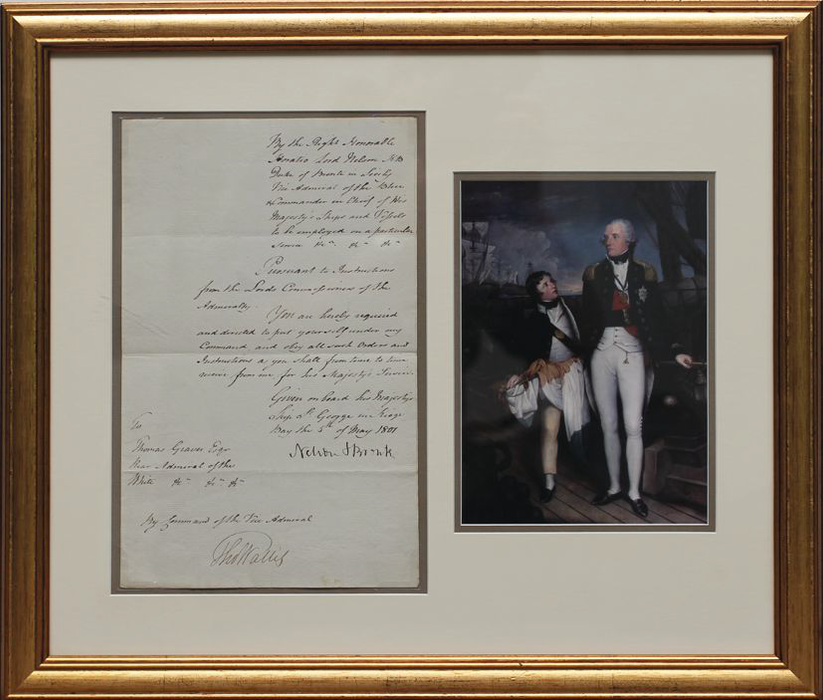 By the Right Honorable
Horatio Lord Nelson K.B.
Duke of Bronte in Sicily
Vice Admiral of the Blue
& Commander in Chief of His
Majesty's Ships and Vessels
to be employed on a particular
Service &c &c &c
Pursuant to Instructions
from the Lords Commissioners of the
Admiralty
You are hereby required
and directed to put yourself under my
Command and obey all such Orders and
Instructions as you shall from time to time
receive from me for his Majesty's Service
Given on board his Majesty's
Ship St. George in Kioge
Bay the 5th of May 1801
Nelson & Bronte
To
Thomas Graves Esqr
Rear Admiral of the
White &c &c &c
By Command of the Vice Admiral
Tho Wallis